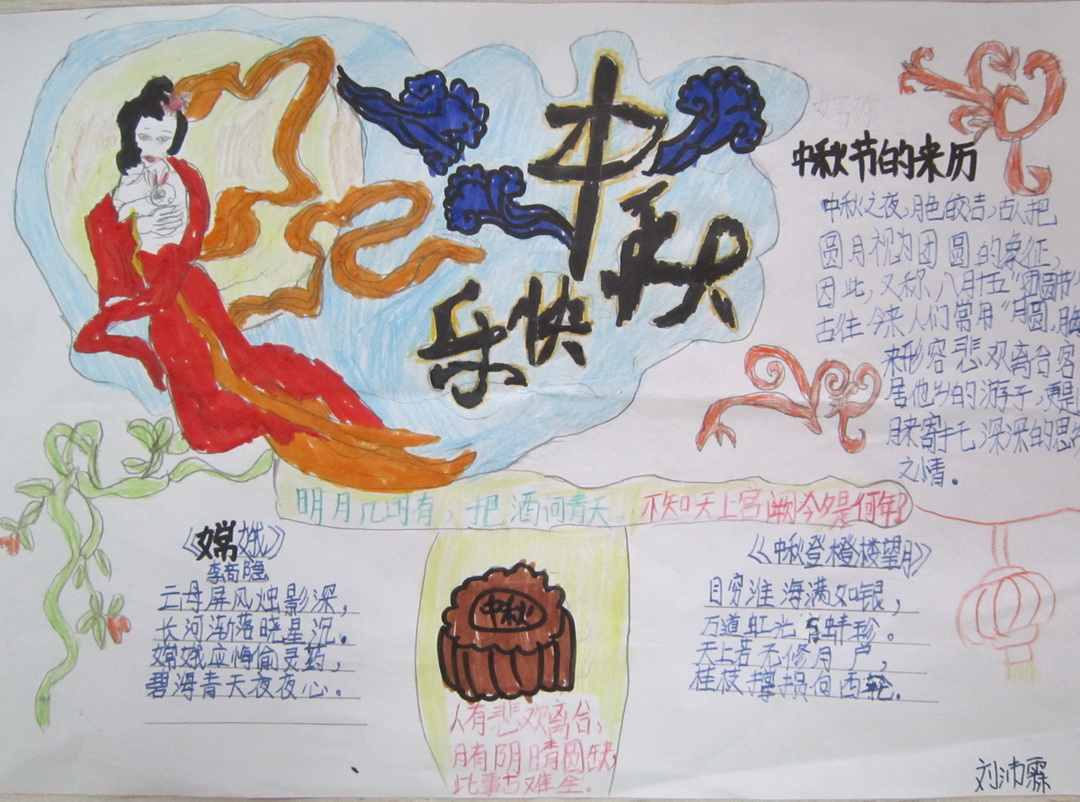 中秋
乐快
中秋节的来历
中秋之夜,月色皎洁,古人把
圆月视为团圆的象征,
因此,又称八月十五“团圆节”
古往今来人们常用“月圆、月
来形容悲观离合客
居他乡的游子,更是
月来寄于深深的思
之情。
明月几时有,把酒问青天。不知天上宫阙今夕是何年?
《嫦娥》
李商隐
云母屏风烛影深,
长河渐落晓星沉。
嫦娥应悔偷灵药,
碧海青天夜夜心。
中秋
人有悲欢离合,
月有阴晴圆缺,
此事古难全。
《中秋登橙楼望月》
目穷淮海满如银,
万道虹光育蜻珍。
天上若无修月户,
桂枝撑损向西轮.
刘沛霖